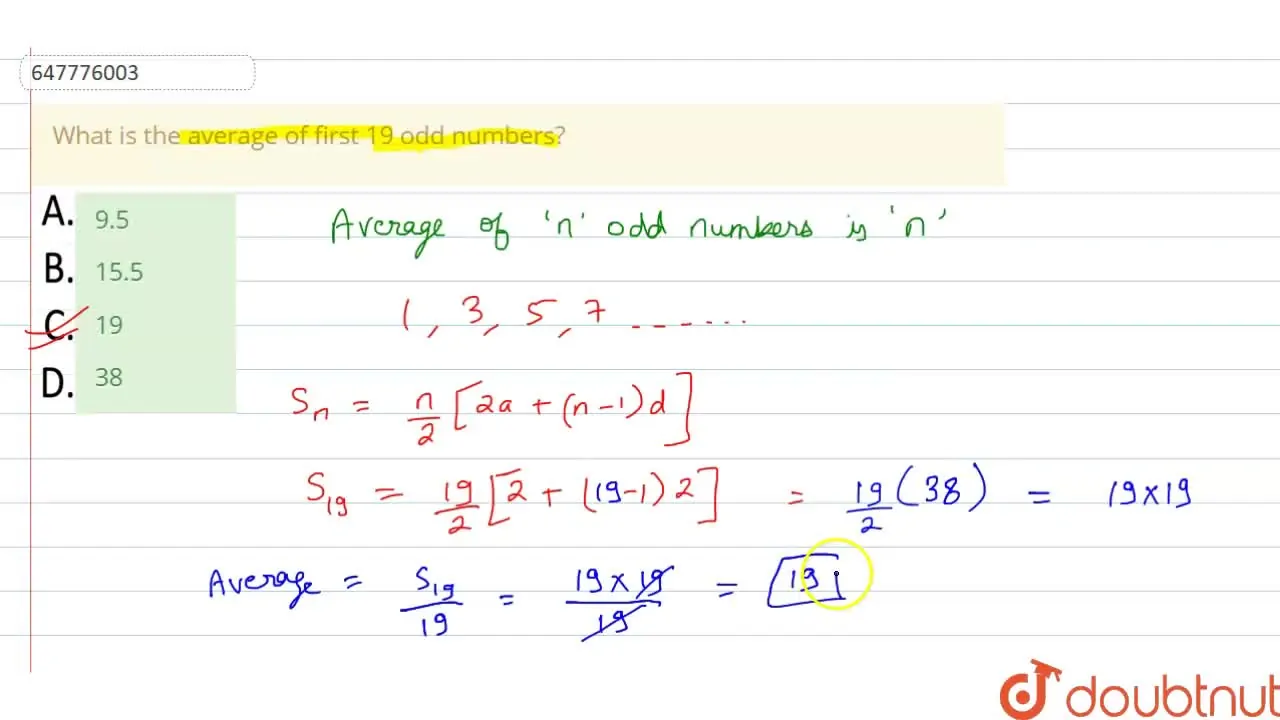 647776003
What is the average of first 19 odd numbers?
A. 9.5
B. 15.5
C. 19
D. 38
Average of 'n' odd numbers is 'n'
1, 3, 5, 7 -------
Sₙ = n/2 [2a + (n-1)d]
S₁₉ = 19/2 [2 + (19-1)2] = 19/2 (38) = 19×19
Average = S₁₉/19 = 19×19/19 = 19
doubtnut